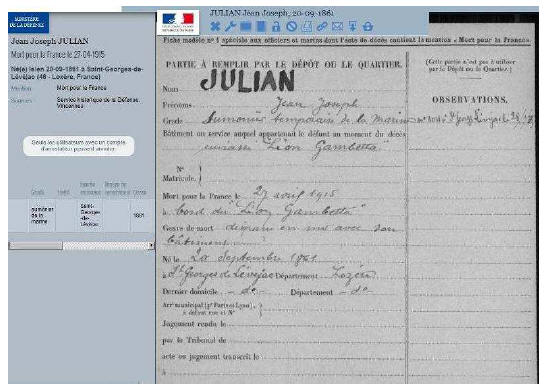 MINISTÈRE
DE LA DÉFENSE
JULIAN Jean Joseph, 20-09-1861
Jean Joseph JULIAN
Mort pour la France le 27-04-1915
Né(e) le/en 20-09-1861 à Saint-Georges-de-
Lévéjac (48 - Lozère, France)
Mention Mort pour la France
Sources Service historique de la Défense,
Vincennes
Seuls les utilisateurs avec un compte
d'annotateur peuvent annoter.
Grade Unité Classe
aumônier
de la
marine
Saint-
Georges
-de-
Lévéjac
1881
Fiche modèle n° 1 spéciale aux officiers et marins dont l'acte de décès contient la mention « Mort pour la France »
PARTIE À REMPLIR PAR LE DÉPÔT OU LE QUARTIER.
(Cette partie n'est pas à utiliser
par le Dépôt ou le Quartier.)
JULIAN
Nom
Prénoms Jean Joseph
OBSERVATIONS.
Grade Aumonier temporaire de la marine
Bâtiment ou service auquel appartenait le défunt au moment du décès
cuirassé "Léon Gambetta"
N°
Matricule.
Mort pour la France le 27 avril 1915
à bord du "Léon Gambetta"
Genre de mort disparu en mer avec son
bâtiment
Né le 20 Septembre 1861
à St Georges de Lévéjac Département Lozère
Dernier domicile -do- Département -do-
Arr^t municipal (p^r Paris et Lyon).
à défaut rue et N°
Jugement rendu le
par le Tribunal de
acte ou jugement transcrit le
à